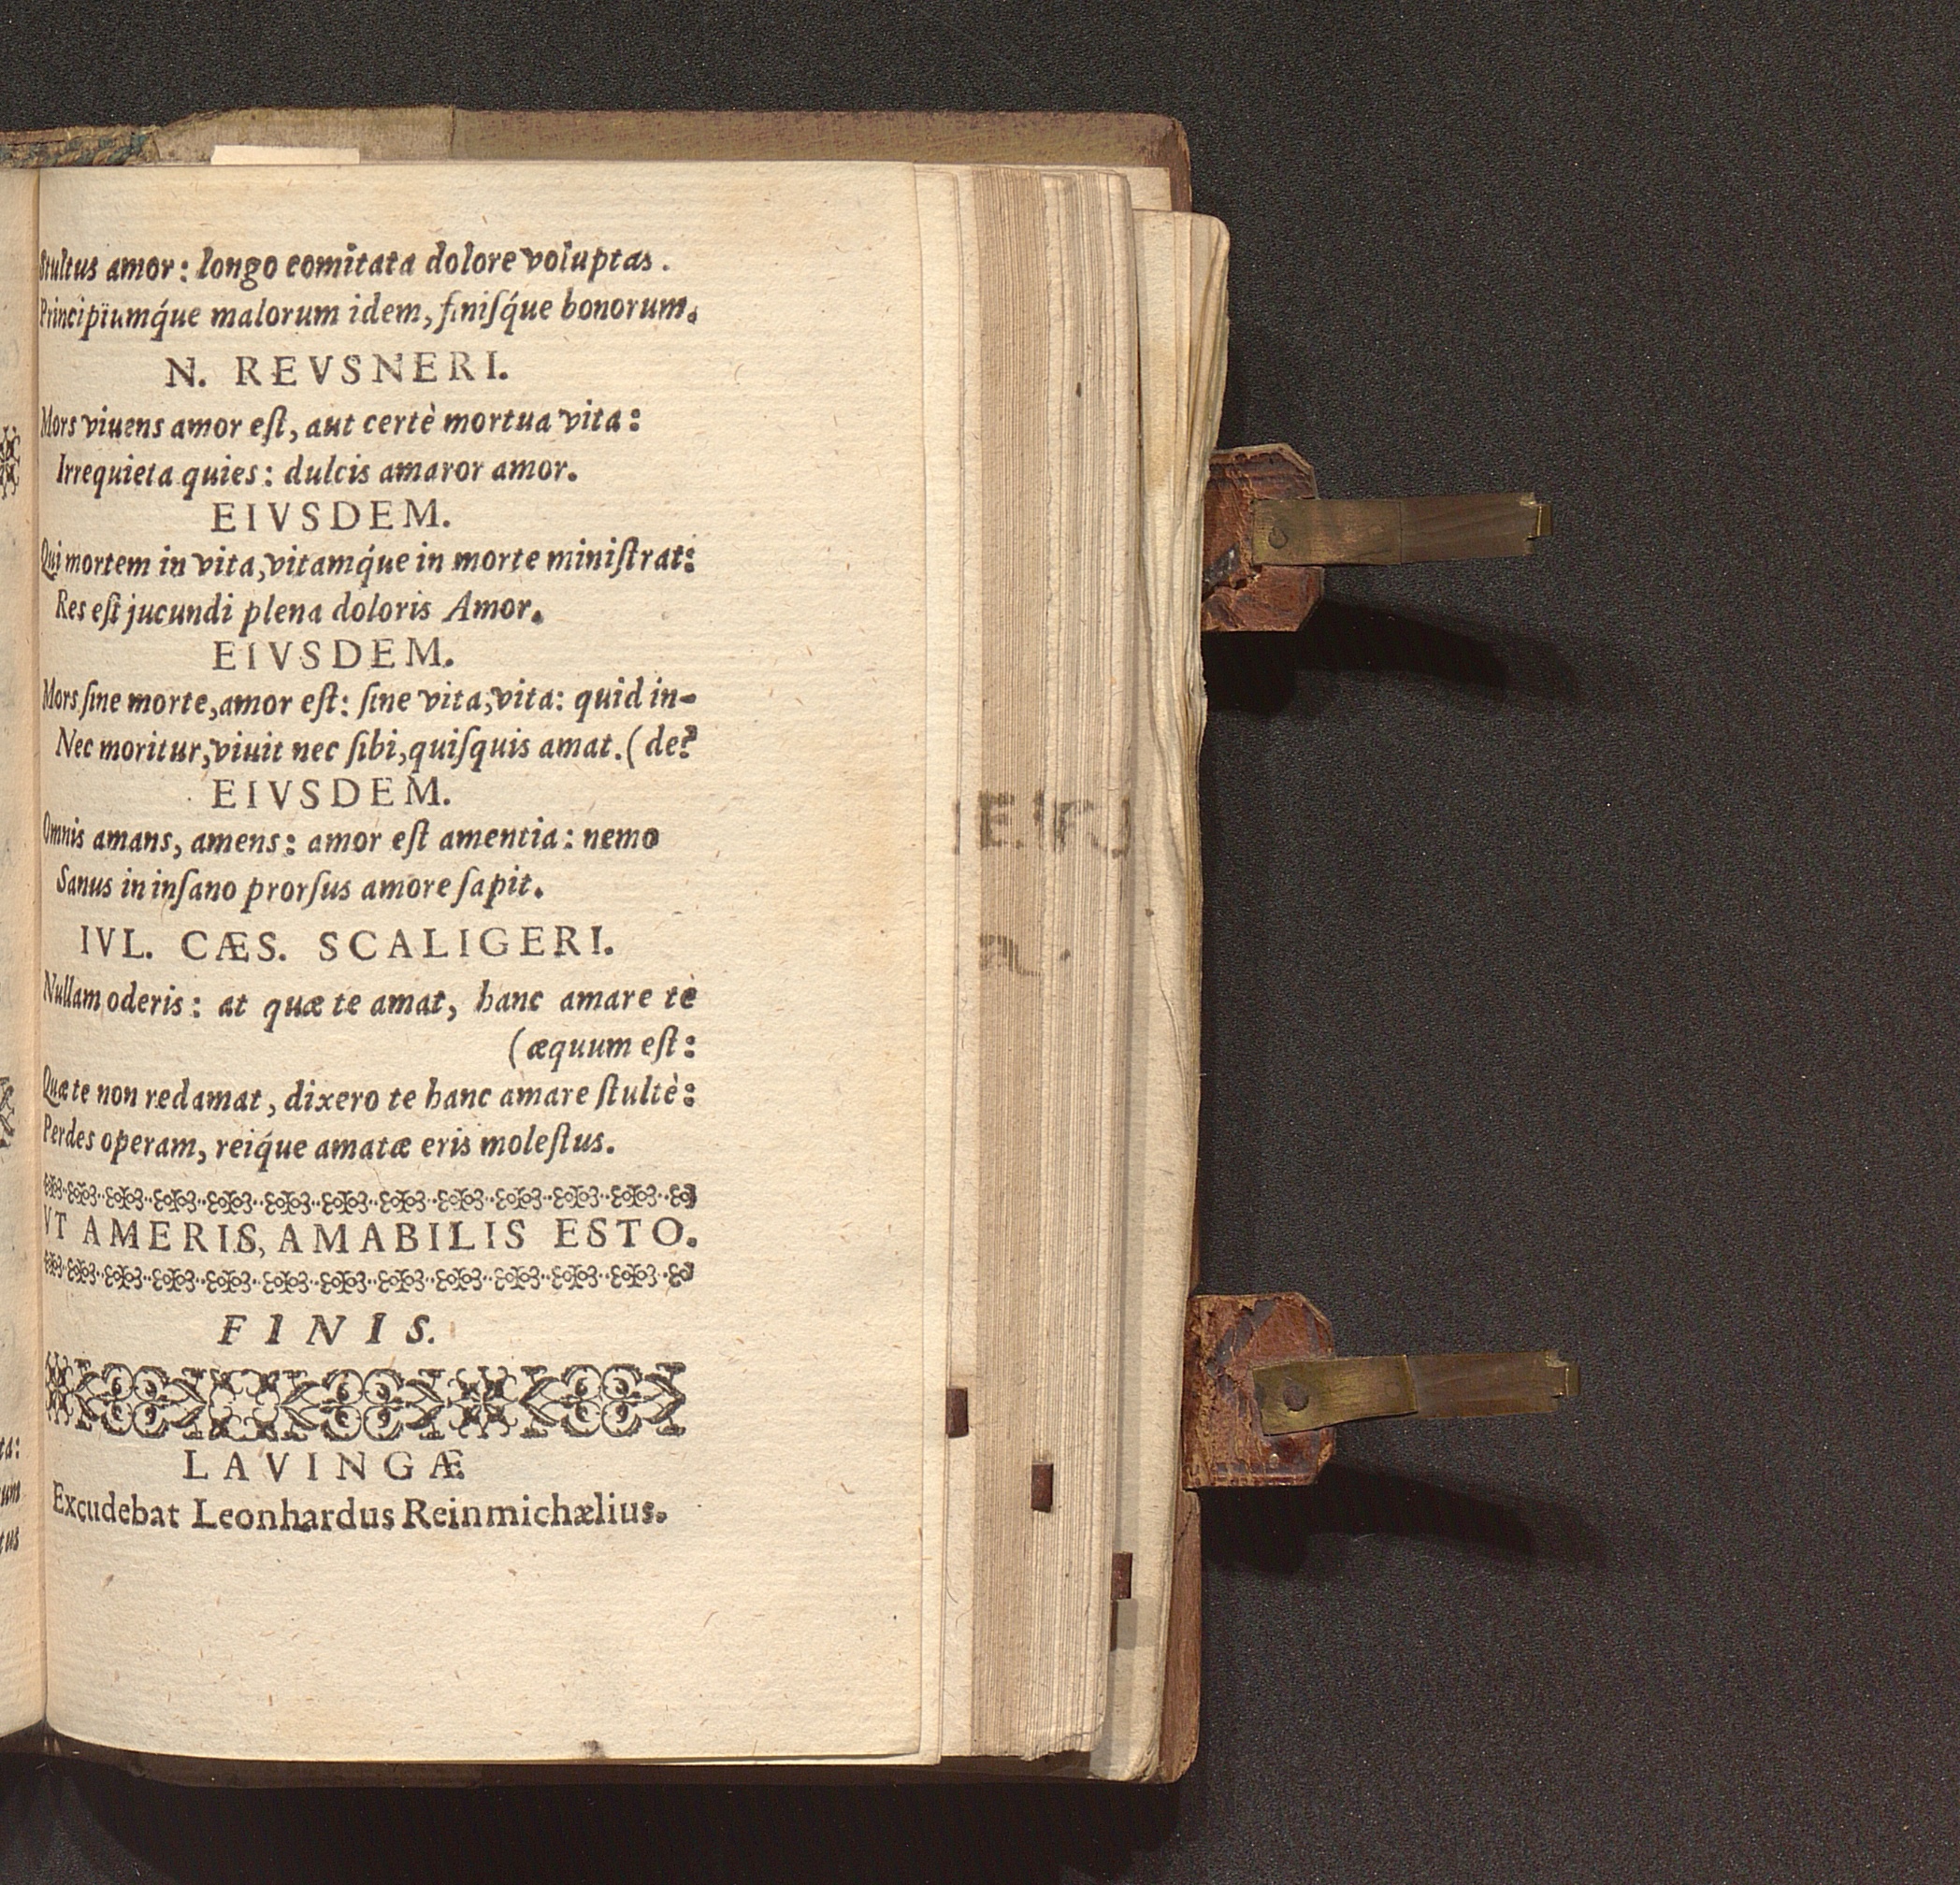 Stultus amor: longo comitata dolore voluptas.
Principiumq́ue malorum idem, finiſq́ue bonorum.
N. REVSNERI.
Mors viuens amor eſt, aut certè mortua vita:
Irrequieta quies: dulcis amaror amor.
EIVSDEM.
Qui mortem in vita, vitamq́ue in morte miniſtrat:
Res eſt jucundi plena doloris Amor.
EIVSDEM.
Mors ſine morte, amor eſt: ſine vita, vita: quid in-
Nec moritur, viuit nec ſibi, quiſquis amat. (de?
EIVSDEM.
Omnis amans, amens: amor eſt amentia: nemo
Sanus in inſano prorſus amore ſapit.
IVL. CÆS. SCALIGERI.
Nullam oderis: at quæ te amat, hanc amare te
(æquum eſt:
Quæ te non redamat, dixero te hanc amare ſtultè:
Perdes operam, reiq́ue amatæ eris moleſtus.
VT AMERIS, AMABILIS ESTO.
FINIS.
LAVINGÆ
Excudebat Leonhardus Reinmichælius.
ta:
um
tus